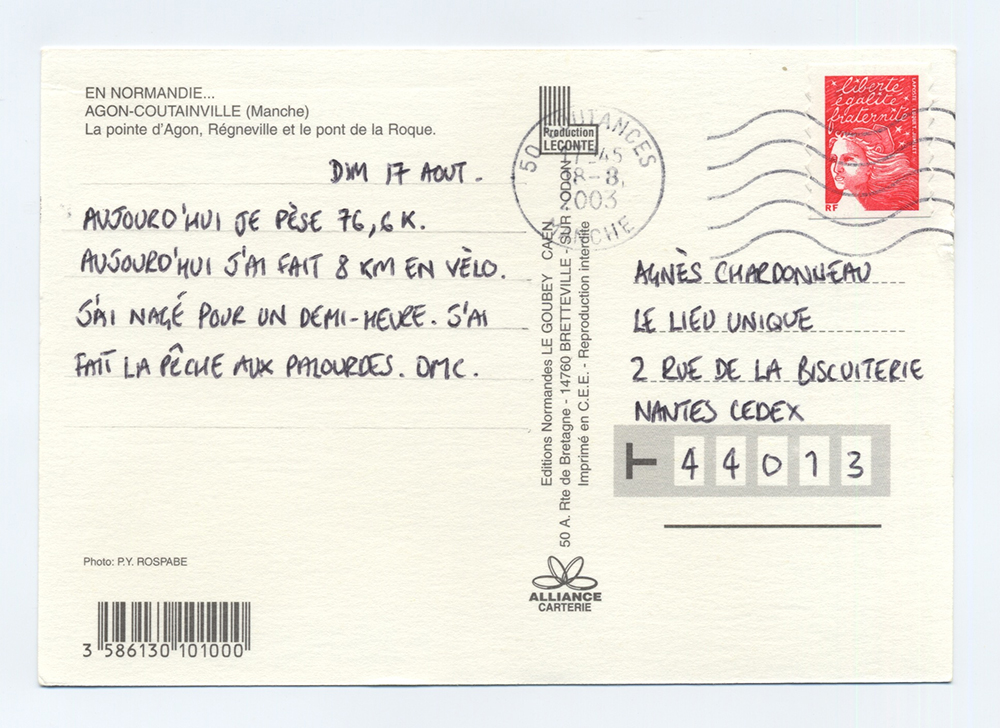 EN NORMANDIE...
AGON-COUTAINVILLE (Manche)
La pointe d'Agon, Régneville et le pont de la Roque.
DIM 17 AOUT.
AUJOURD'HUI JE PÈSE 76,6 K.
AUJOURD'HUI J'AI FAIT 8 KM EN VÉLO.
J'AI NAGÉ POUR UN DEMI-HEURE. J'AI
FAIT LA PÊCHE AUX PALOURDES. DMC.
Photo: P.Y. ROSPABE
3 586130 101000
Production
LECONTE
50 COUTANCES
17-45
18-8,
2003
MANCHE
Editions Normandes LE GOUBEY CAEN
50 A. Rte de Bretagne - 14760 BRETTEVILLE - SUR - ODON
Imprimé en C.E.E. - Reproduction interdite
ALLIANCE
CARTERIE
liberté
égalité
fraternité
RF
LA POSTE
AGNÈS CHARDONNEAU
LE LIEU UNIQUE
2 RUE DE LA BISCUITERIE
NANTES CEDEX
T 44013